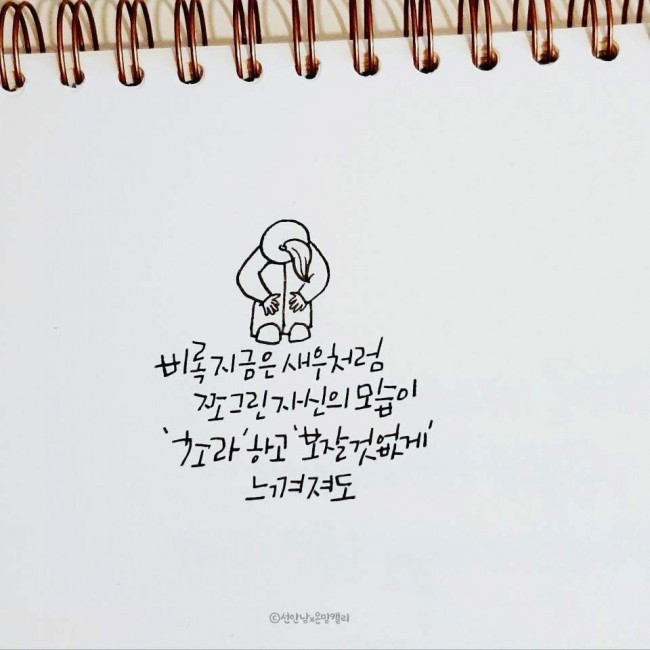 비록 지금은 새우처럼
쪼그린 자신의 모습이
'초라'하고 '보잘것없게'
느껴져도
©선안남x온맘캘리